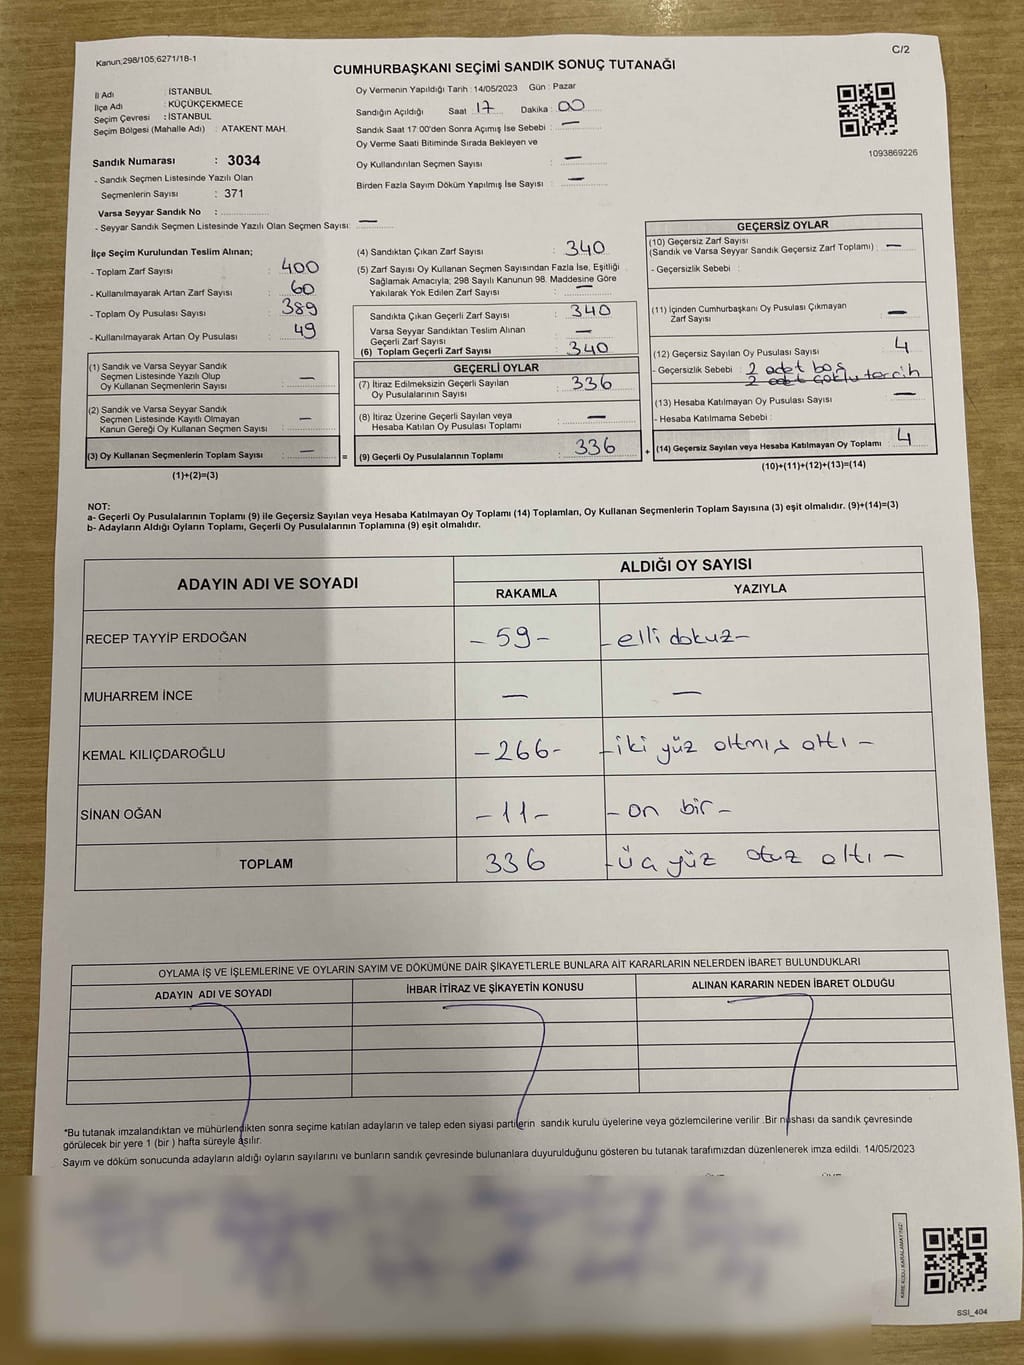 Kanun;298/105,6271/18-1
C/2
CUMHURBAŞKANI SEÇİMİ SANDIK SONUÇ TUTANAĞI
İl Adı : İSTANBUL
İlçe Adı : KÜÇÜKÇEKMECE
Seçim Çevresi : İSTANBUL
Seçim Bölgesi (Mahalle Adı) : ATAKENT MAH.
Sandık Numarası : 3034
- Sandık Seçmen Listesinde Yazılı Olan
Seçmenlerin Sayısı : 371
Varsa Seyyar Sandık No : ....................
- Seyyar Sandık Seçmen Listesinde Yazılı Olan Seçmen Sayısı: —
Oy Vermenin Yapıldığı Tarih : 14/05/2023 Gün : Pazar
Sandığın Açıldığı Saat 17 Dakika : 00
Sandık Saat 17:00'den Sonra Açımış İse Sebebi : —
Oy Verme Saati Bitiminde Sırada Bekleyen ve
Oy Kullandırılan Seçmen Sayısı : —
Birden Fazla Sayım Döküm Yapılmış İse Sayısı : —
1093869226
İlçe Seçim Kurulundan Teslim Alınan;
- Toplam Zarf Sayısı : 400
- Kullanılmayarak Artan Zarf Sayısı : 60
- Toplam Oy Pusulası Sayısı : 389
- Kullanılmayarak Artan Oy Pusulası : 49
(1) Sandık ve Varsa Seyyar Sandık
Seçmen Listesinde Yazılı Olup
Oy Kullanan Seçmenlerin Sayısı : —
(2) Sandık ve Varsa Seyyar Sandık
Seçmen Listesinde Kayıtlı Olmayan
Kanun Gereği Oy Kullanan Seçmen Sayısı : —
(3) Oy Kullanan Seçmenlerin Toplam Sayısı : — =
(1)+(2)=(3)
(4) Sandıktan Çıkan Zarf Sayısı : 340
(5) Zarf Sayısı Oy Kullanan Seçmen Sayısından Fazla İse, Eşitliği
Sağlamak Amacıyla; 298 Sayılı Kanunun 98. Maddesine Göre
Yakılarak Yok Edilen Zarf Sayısı : —
Sandıkta Çıkan Geçerli Zarf Sayısı : 340
Varsa Seyyar Sandıktan Teslim Alınan
Geçerli Zarf Sayısı : —
(6) Toplam Geçerli Zarf Sayısı : 340
GEÇERLİ OYLAR
(7) İtiraz Edilmeksizin Geçerli Sayılan
Oy Pusulasının Sayısı : 336
(8) İtiraz Üzerine Geçerli Sayılan veya
Hesaba Katılan Oy Pusulası Toplamı : —
(9) Geçerli Oy Pusulalarının Toplamı : 336 +
GEÇERSİZ OYLAR
(10) Geçersiz Zarf Sayısı
(Sandık ve Varsa Seyyar Sandık Geçersiz Zarf Toplamı) : —
- Geçersizlik Sebebi :
(11) İçinden Cumhurbaşkanı Oy Pusulası Çıkmayan
Zarf Sayısı —
(12) Geçersiz Sayılan Oy Pusulası Sayısı : 4
- Geçersizlik Sebebi : 2 adet boş
2 adet çoklu tercih
(13) Hesaba Katılmayan Oy Pusulası Sayısı : —
- Hesaba Katılmama Sebebi :
(14) Geçersiz Sayılan veya Hesaba Katılmayan Oy Toplamı : 4
(10)+(11)+(12)+(13)=(14)
NOT:
a- Geçerli Oy Pusulalarının Toplamı (9) ile Geçersiz Sayılan veya Hesaba Katılmayan Oy Toplamı (14) Toplamları, Oy Kullanan Seçmenlerin Toplam Sayısına (3) eşit olmalıdır. (9)+(14)=(3)
b- Adayların Aldığı Oyların Toplamı, Geçerli Oy Pusulalarının Toplamına (9) eşit olmalıdır.
ADAYIN ADI VE SOYADI
ALDIĞI OY SAYISI
RAKAMLA YAZIYLA
RECEP TAYYİP ERDOĞAN - 59 - - elli dokuz -
MUHARREM İNCE — —
KEMAL KILIÇDAROĞLU - 266 - - iki yüz altmış altı -
SİNAN OĞAN - 11 - - on bir -
TOPLAM 336 - üç yüz otuz altı -
OYLAMA İŞ VE İŞLEMLERİNE VE OYLARIN SAYIM VE DÖKÜMÜNE DAİR ŞİKAYETLERLE BUNLARA AİT KARARLARIN NELERDEN İBARET BULUNDUKLARI
ADAYIN ADI VE SOYADI İHBAR İTİRAZ VE ŞİKAYETİN KONUSU ALINAN KARARIN NEDEN İBARET OLDUĞU
*Bu tutanak imzalandıktan ve mühürlendikten sonra seçime katılan adayların ve talep eden siyasi partilerin sandık kurulu üyelerine veya gözlemcilerine verilir .Bir nüshası da sandık çevresinde
görülecek bir yere 1 (bir ) hafta süreyle asılır.
Sayım ve döküm sonucunda adayların aldığı oyların sayılarını ve bunların sandık çevresinde bulunanlara duyurulduğunu gösteren bu tutanak tarafımızdan düzenlenerek imza edildi. 14/05/2023
KARE KODU KARALAMAYINIZ!
SSI_404